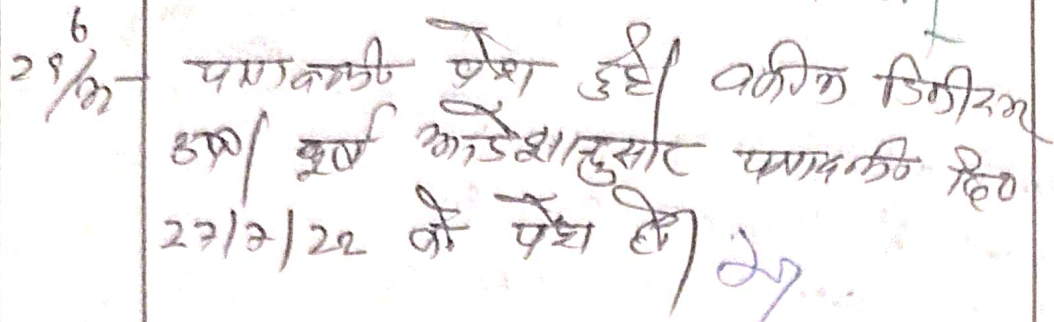 29/6 पत्रावली पेश हुई। वकील डिक्रीदार
उप०। पूर्व आदेशानुसार पत्रावली दि०
27/7/22 को पेश हो।